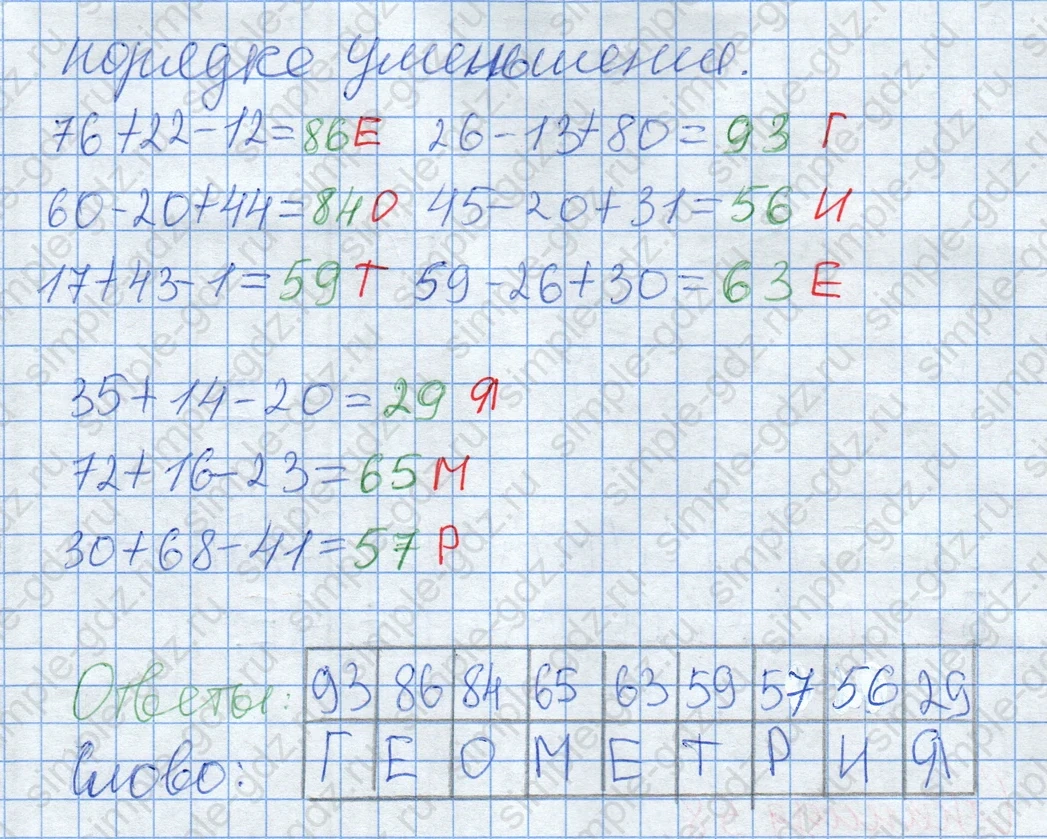 порядке уменьшения.
76+22-12=86 Е 26-13+80=93 Г
60-20+44=84 О 45-20+31=56 И
17+43-1=59 Т 59-26+30=63 Е
35+14-20=29 Я
72+16-23=65 М
30+68-41=57 Р
Ответы: 93 86 84 65 63 59 57 56 29
Слово: Г Е О М Е Т Р И Я
simple-gdz.ru